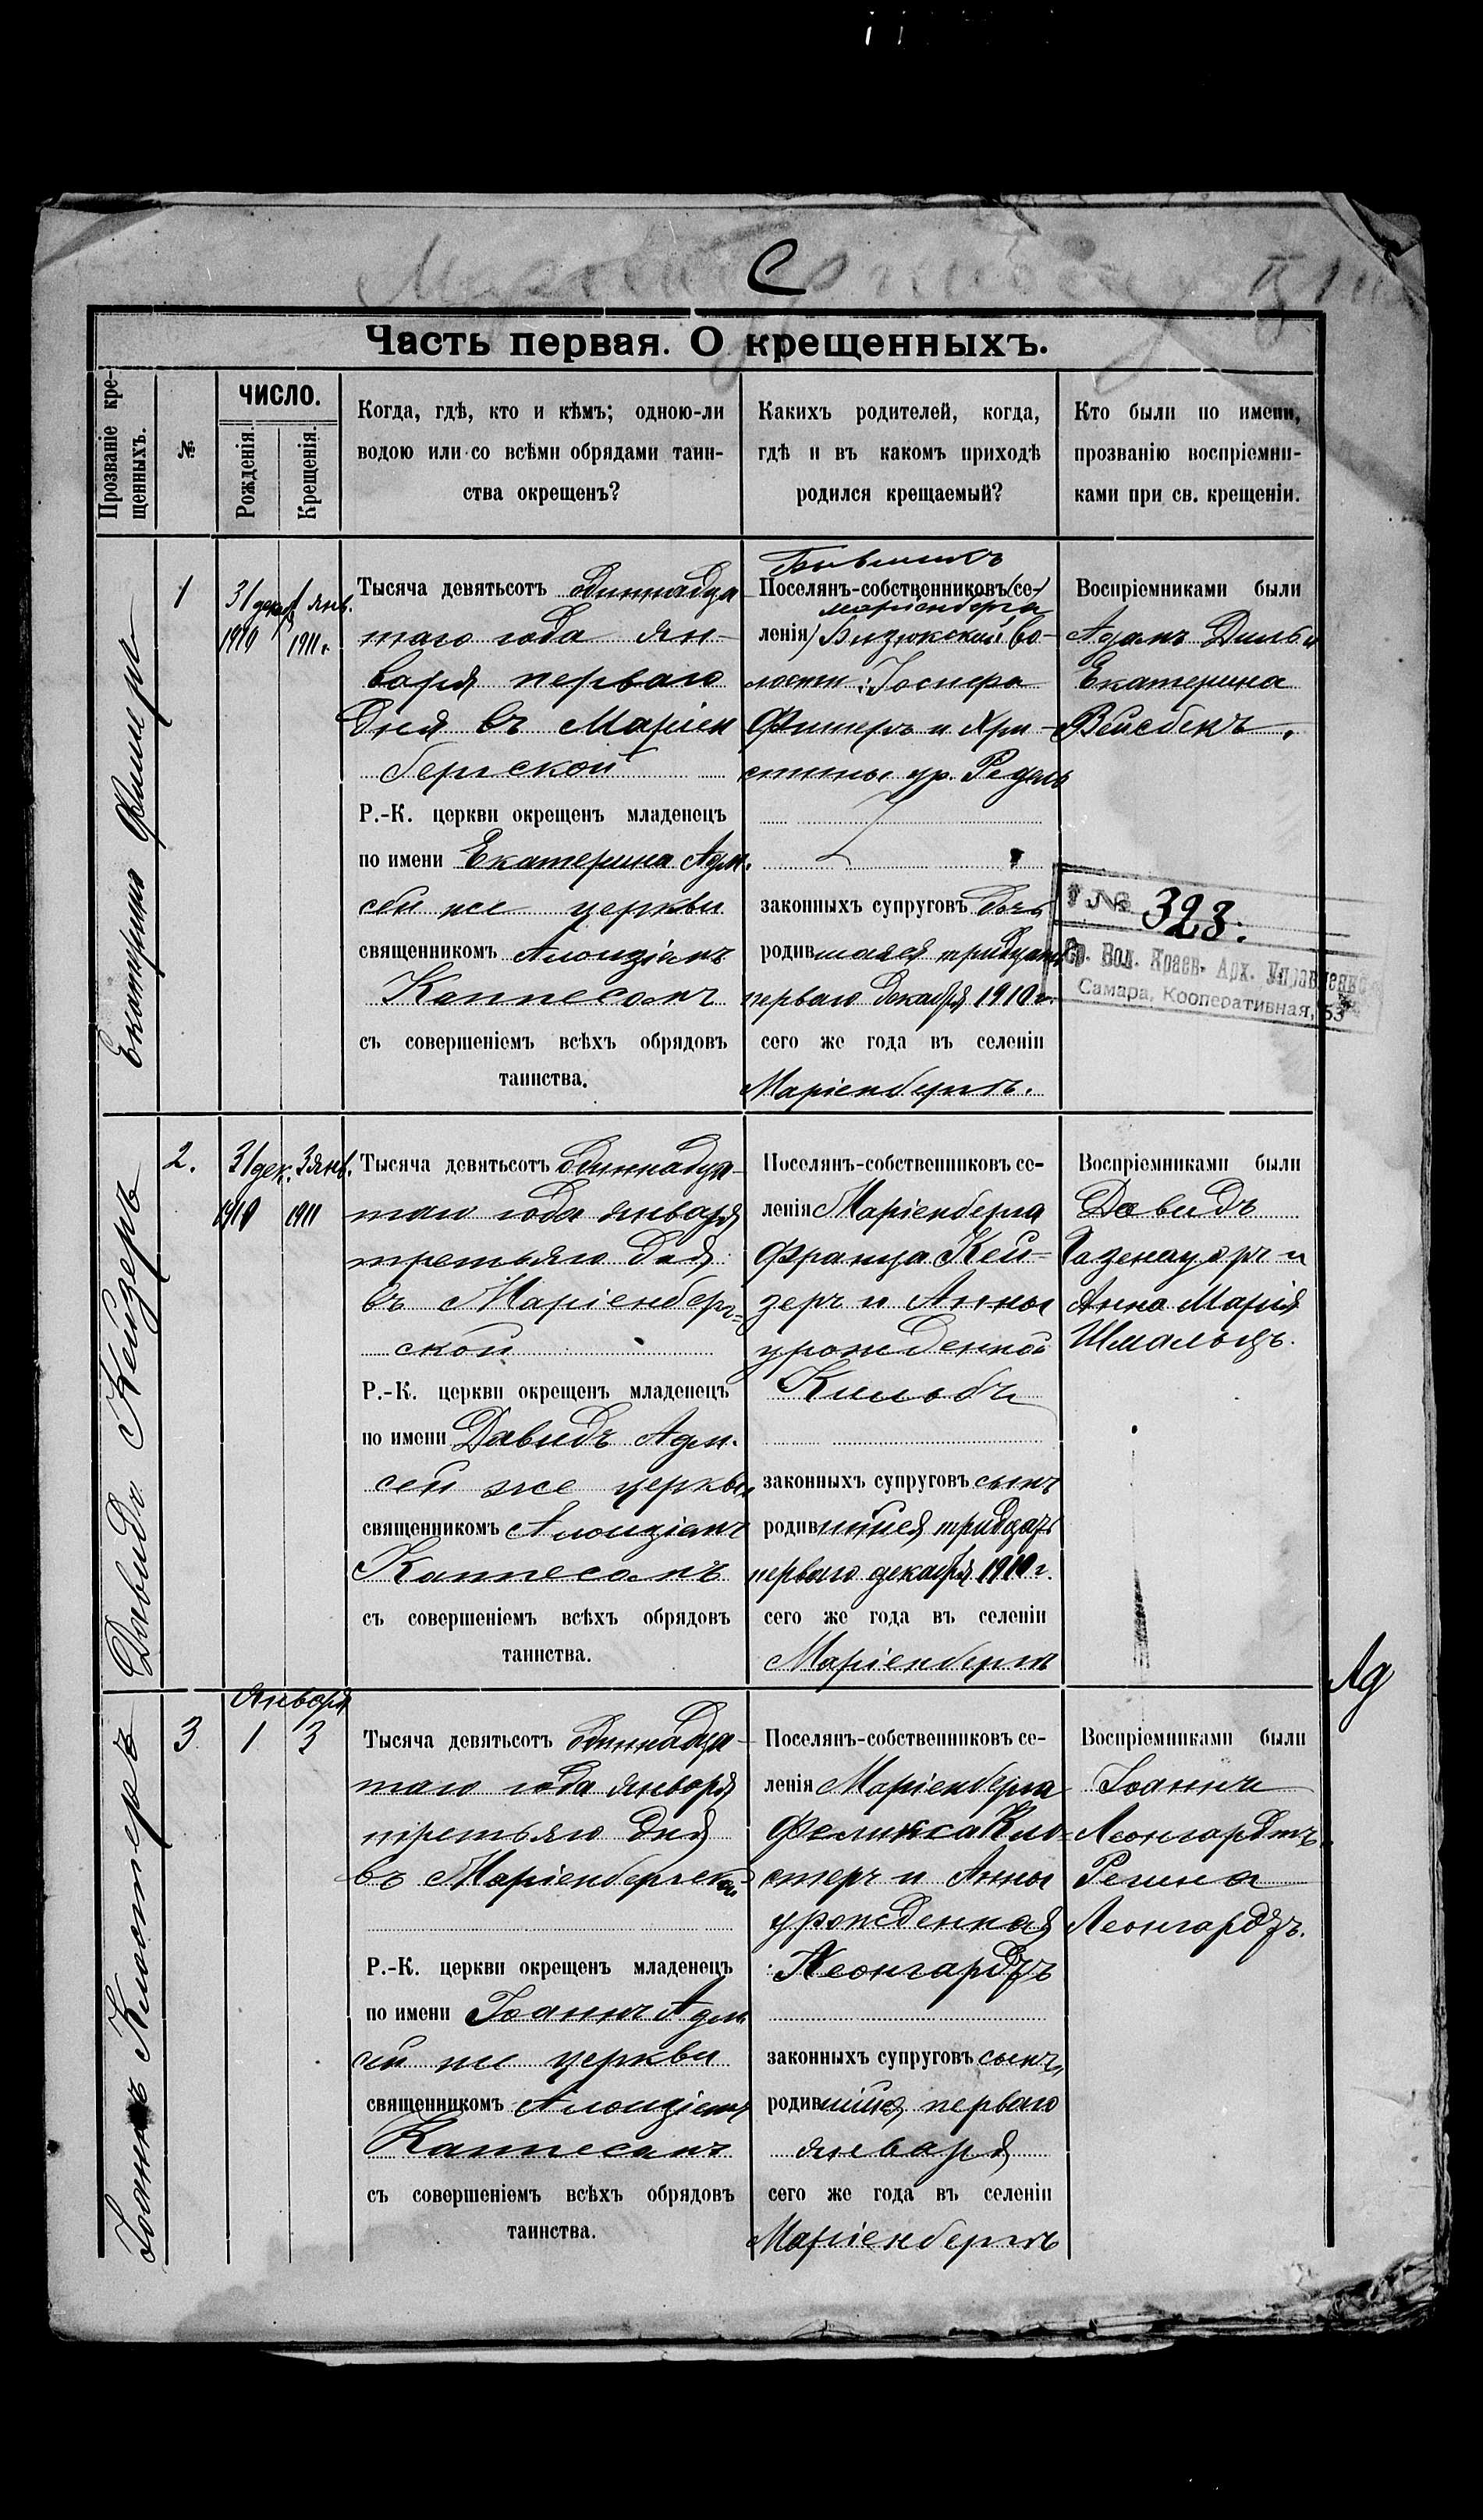 С
Часть первая. О крещенныхъ.
Прозваніе кре-
щенныхъ.
№
ЧИСЛО.
Рожденія.
Крещенія.
Когда, гдѣ, кто и кѣмъ; одною-ли
водою или со всѣми обрядами таин-
ства окрещенъ?
Какихъ родителей, когда,
гдѣ и въ какомъ приходѣ
родился крещаемый?
Кто были по имени,
прозванію воспріемни-
ками при св. крещеніи.
Екатерина Фишеръ
1
31 декаб.
1910
1 янв.
1911 г.
Тысяча девятьсотъ одиннадца
таго года ян-
варя перваго
дня въ Маріен
бергской
Р.-К. церкви окрещенъ младенецъ
по имени Екатерина Адм.
сей же церкви
священникомъ Алоизіемъ
Каппесомъ
съ совершеніемъ всѣхъ обрядовъ
таинства.
Бывшихъ
Поселянъ-собственниковъ (се-
Маріенберга
ленія) Бизюкской во-
лости: Іосифа
Фишеръ и Хри-
стины ур. Редель
законныхъ супруговъ дочь
родившаяся тридцать
перваго декабря 1910 г.
сего же года въ селеніи
Маріенбергъ.
Воспріемниками были
Адамъ Диль и
Екатерина
Вейсбекъ.
№ 323.
Ср. Вол. Краев. Арх. Управление
Самара, Кооперативная, 53
Давидъ Кейзеръ
2.
31 дек.
1910
3 янв.
1911
Тысяча девятьсотъ одиннадца-
таго года января
третьяго дня
въ Маріенберг=
ской
Р.-К. церкви окрещенъ младенецъ
по имени Давидъ Адм.
сей же церкви
священникомъ Алоизіемъ
Каппесомъ
съ совершеніемъ всѣхъ обрядовъ
таинства.
Поселянъ-собственниковъ се-
ленія Маріенберга
Франца Кей=
зеръ и Анны
урожденной
Кильбъ
законныхъ супруговъ сынъ
родившійся тридцать
перваго декабря 1910 г.
сего же года въ селеніи
Маріенбергъ
Воспріемниками были
Давидъ
Газенауэръ и
Анна Марія
Шмальцъ.
Ад
Іоаннъ Клостеръ
3
Января
1
3
Тысяча девятьсотъ одиннадца-
таго года января
третьяго дня
въ Маріенбергской
Р.-К. церкви окрещенъ младенецъ
по имени Іоаннъ Адм
сей же церкви
священникомъ Алоизіемъ
Каппесомъ
съ совершеніемъ всѣхъ обрядовъ
таинства.
Поселянъ-собственниковъ се-
ленія Маріенберга
Феликса Кло=
стеръ и Анны
урожденная
Леонгардтъ
законныхъ супруговъ сынъ,
родившійся перваго
января
сего же года въ селеніи
Маріенбергъ
Воспріемниками были
Іоаннъ
Леонгардтъ.
Регина
Леонгардтъ.